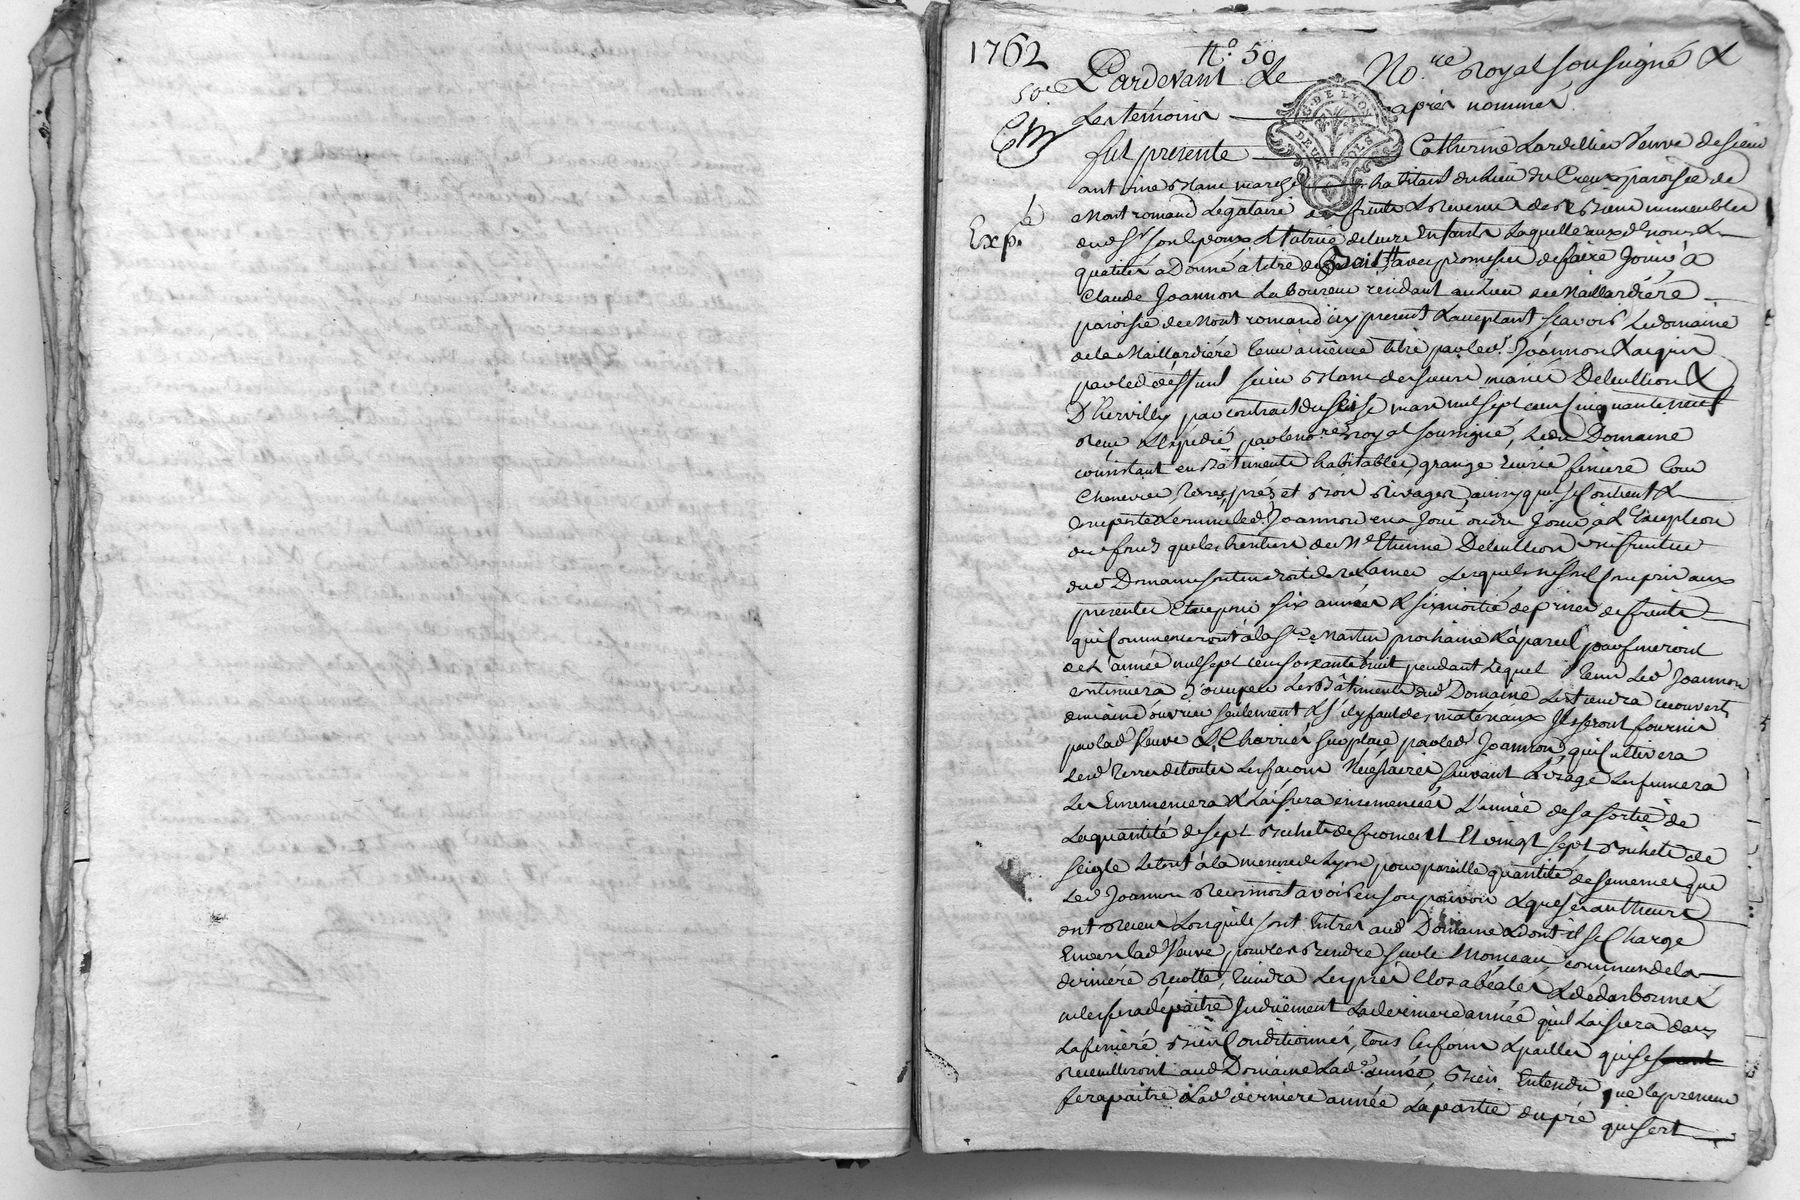 1762
N.o 50
50e
Pardevant Le No.re Royal soussigné &
Les témoins apres nommés
G. DE LYON
DEUX SOLS
fut presente Catherine Lardellier Veuve de sieur
antoine blanc march habitant du Lieu du Creux paroisse de
Exp.é
Montromand Legataire des fruits & revenus des biens immeubles
dud Sr son Epoux & tutrice de leurs Enfants Laquelle aux d noms &
qualités a Donné a titre de avec promesse de faire Jouir à
Claude Joannon Laboureur residant au Lieu de Maillardière
paroisse de Montromand icy present & acceptant sçavoir Le domaine
de la Maillardière tenu a même titre par led. Joannon & acquis
par led déffunt sieur blanc des sieurs mariés Deleullion &
D'hervilly par contract du seise mars mil sept cent Cinquante neuf
Reçu & Expédié par le no.re royal soussigné, Led Domaine
consistant en bâtiments habitables, grange Ecurie feniere Cour
Cheneviere, terres, prés et bois rivages, ainsy qu'il se Contient &
comporte & comme led. Joannon en a Joui ou du Jouir à L'Exception
des fonds que les heritiers de Me Etienne Deleullion
dud Domaine sont en droit de reclamer Lesquels ne sont Compris aux
presentes Et ce pour six années & six moitié de prises de fruits
qui Commenceront à la St Martin prochaine & à pareil jour finiront
de L'année mil sept cent soixante huit pendant Lequel tems Led Joannon
continuera d'occuper Les Bâtiments dud Domaine Les tiendra recouverts
de main d'ouvrier seulement & s'il y faut des matériaux Ils seront fournis
par lad Veuve & Charriés sur place par led Joannon qui Cultivera
Led terres de toutes Les façons Necessaires suivant L'usage Les fumera
Les Ensemencera & Laissera ensemencés L'année de sa sortie de
La quantité de sept bichets de froment Et vingt sept bichets de
seigle Le tout à la mesure de Lyon pour pareille quantité de semences que
Led Joannon Reconnoit avoir en son pouvoir & que ses autheurs
ont Reçus Lorsqu'ils sont Entrés aud Domaine & dont il se Charge
Envers lad Veuve, pour les Rendre sur le Monceau commun de la
derniere Recolte, tiendra Les prés Clos abéalés & dédarbonnés
ne les fera dépaitre Induëment La derniere année qu'il Laissera dans
La feniere bien Conditionnés, tous Les foins & pailles qui se
Recueilliront aud Domaine Lad année, bien Entendu que le preneur
fera paitre Lad derniere année La partie du pré qui sert